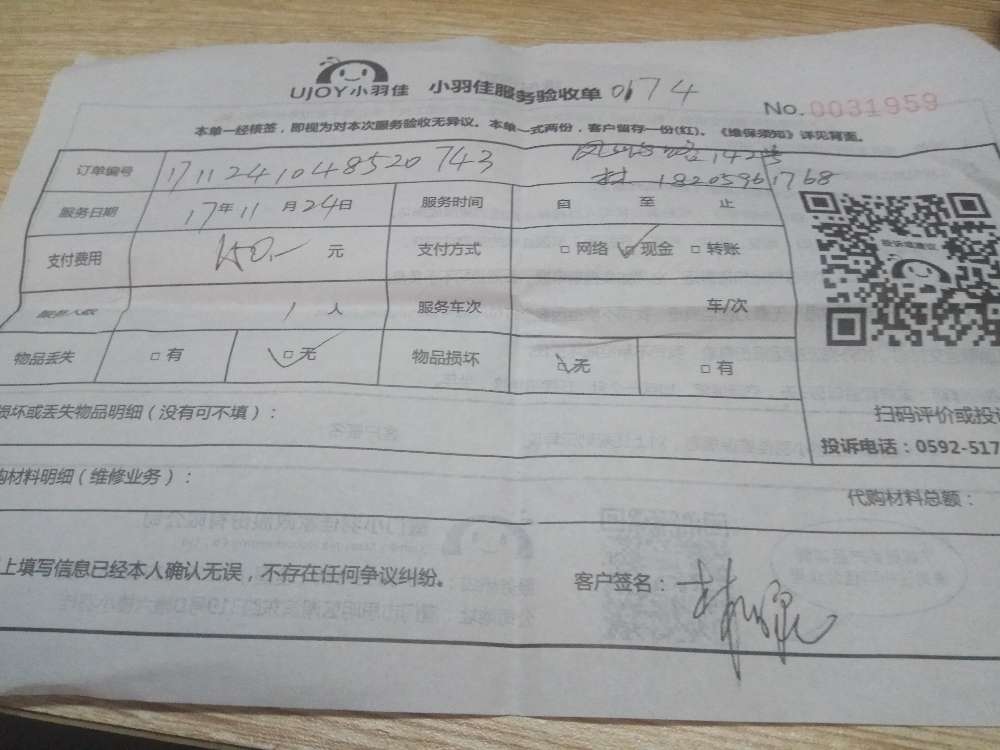 UJOY小羽佳 小羽佳服务验收单 0174
No.0031959
本单一经核签，即视为对本次服务验收无异议。本单一式两份，客户留存一份(红)。《维保须知》详见背面。
订单编号 1711241048520743 142号
林 18205961768
服务日期 17年11月24日 服务时间 自 至 止
支付费用 150.- 元 支付方式 □网络 ☑现金 □转账
服务人数 1 人 服务车次 车/次
投诉或建议
物品丢失 □有 ☑无 物品损坏 ☑无 □有
损坏或丢失物品明细（没有可不填）：
扫码评价或投
投诉电话：0592-517
购材料明细（维修业务）：
代购材料总额：
上填写信息已经本人确认无误，不存在任何争议纠纷。 客户签名：